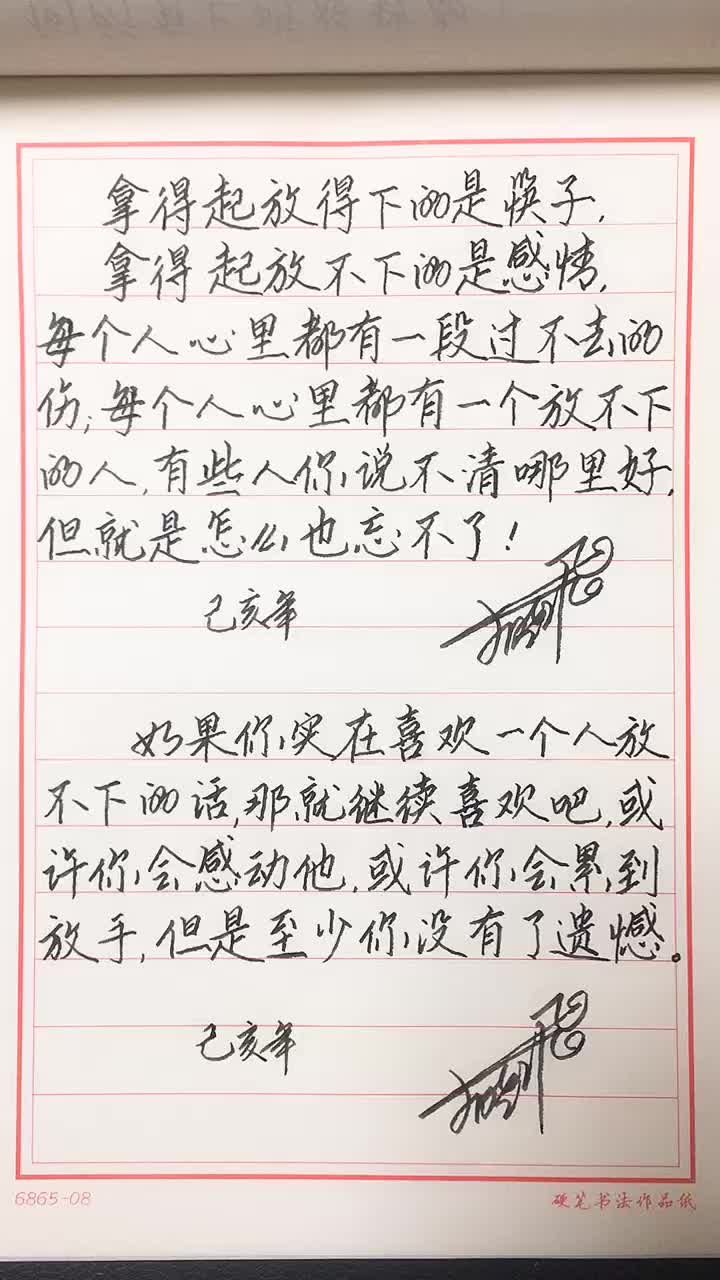 拿得起放得下的是筷子,
拿得起放不下的是感情,
每个人心里都有一段过不去的
伤;每个人心里都有一个放不下
的人,有些人你说不清哪里好,
但就是怎么也忘不了!
己亥年
如果你实在喜欢一个人放
不下的话,那就继续喜欢吧,或
许你会感动他,或许你会累到
放手,但是至少你没有了遗憾。
己亥年
6865-08
硬笔书法作品纸